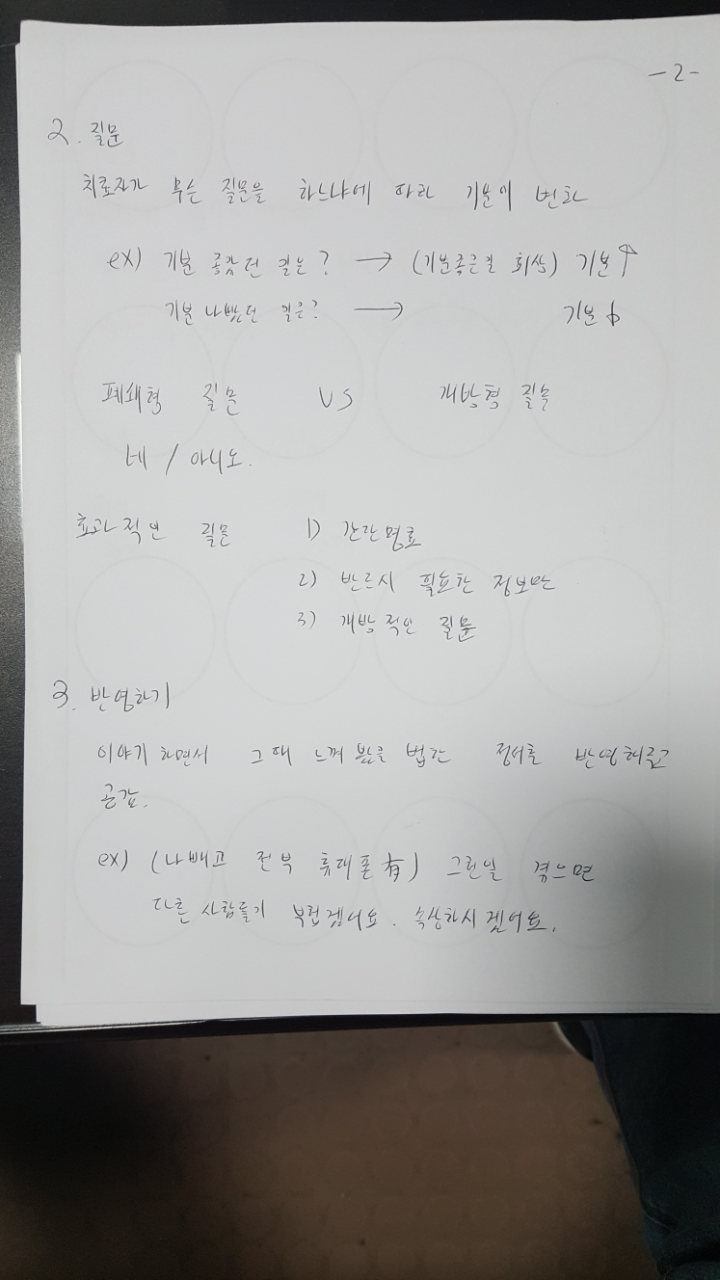 -2-
2. 질문
치료자가 무슨 질문을 하느냐에 따라 기분이 변화
ex) 기분 좋았던 일은? → (기분좋은일 회상) 기분↑
기분 나빴던 일은? → 기분↓
폐쇄형 질문 VS 개방형 질문
네 / 아니오.
효과적인 질문 1) 간단명료
2) 반드시 필요한 정보만
3) 개방적인 질문
3. 반영하기
이야기 하면서 그때 느껴 봤을 법한 정서를 반영해주고
공감.
ex) (나빼고 전부 휴대폰 有) 그런일 겪으면
다른 사람들이 부럽겠어요. 속상하시겠어요.